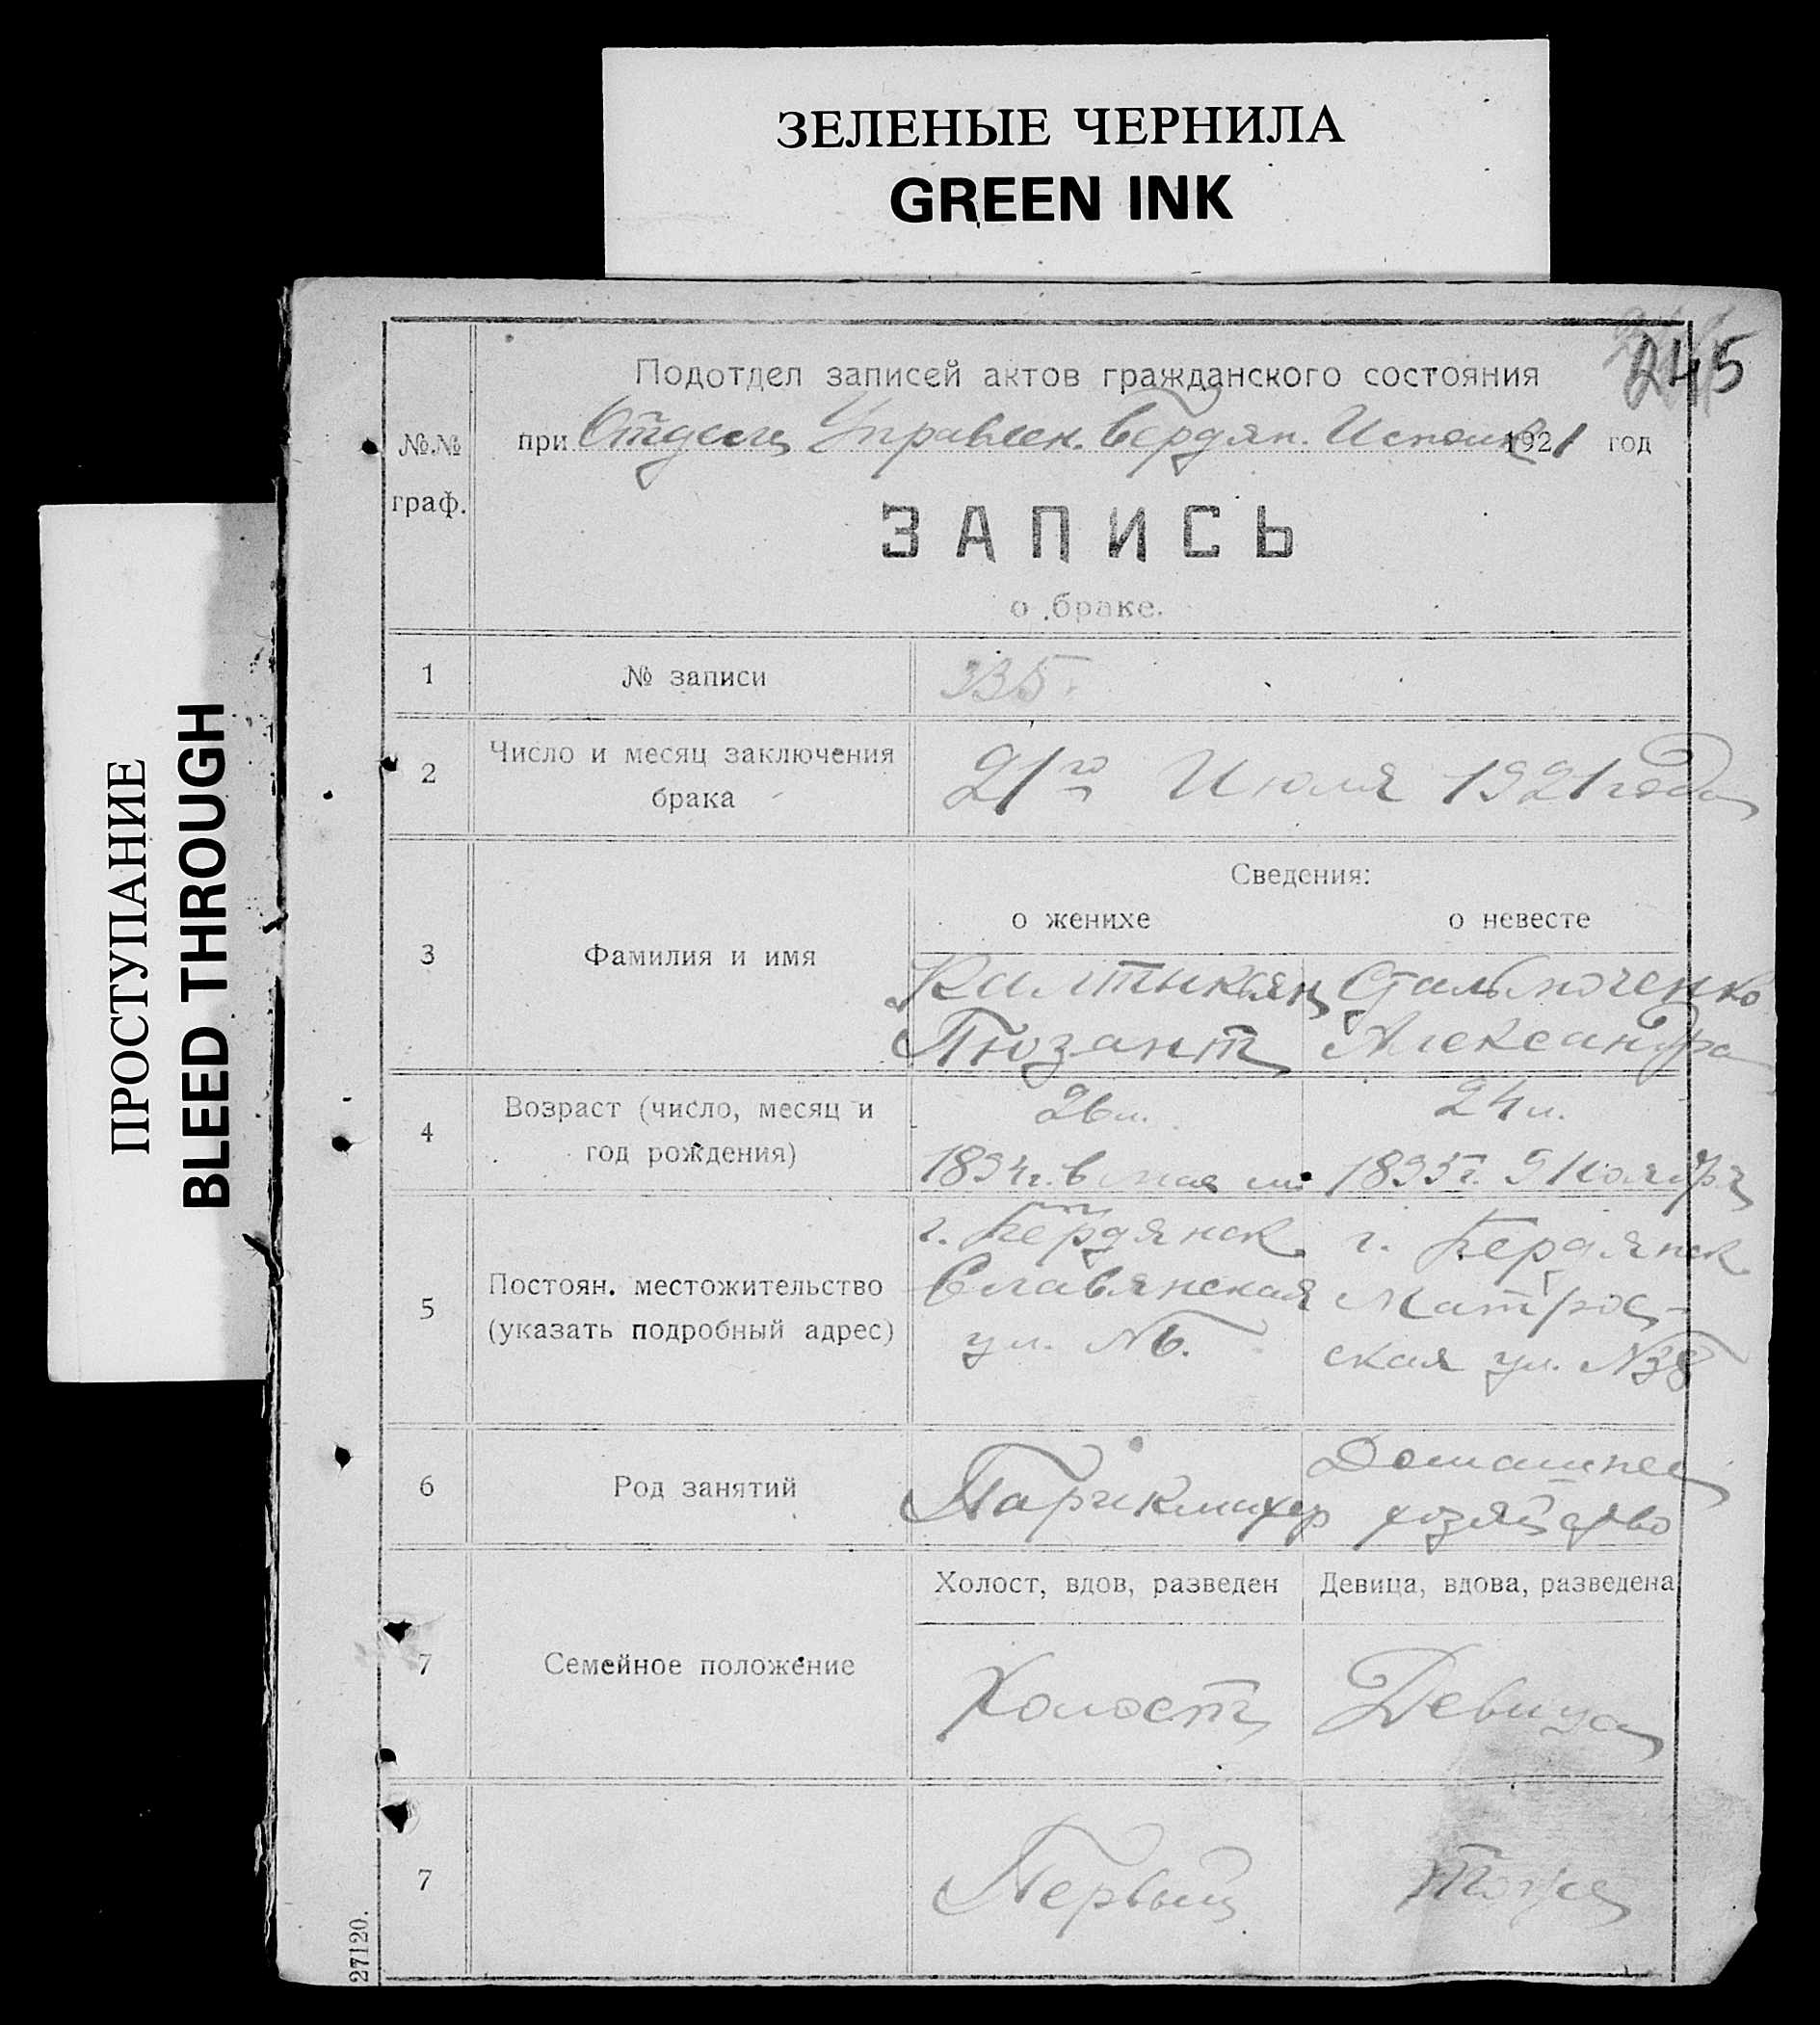 ЗЕЛЕНЫЕ ЧЕРНИЛА
GREEN INK
ПРОСТУПАНИЕ
BLEED THROUGH
245
№№ граф.
Подотдел записей актов гражданского состояния
при Отделе Управлен. Бердян. Исполк 1921 год
ЗАПИСЬ
о браке.
1 № записи 335.
2 Число и месяц заключения
брака
21го Июля 1921 года
Сведения:
о женихе о невесте
3 Фамилия и имя
Александра
4 Возраст (число, месяц и
год рождения)
26 л. 24 л.
1894 г. 1895 г. 9 Ноября
5 Постоян. местожительство
(указать подробный адрес)
г. Бердянск г. Бердянск
Славянская Матрос-
ул. №6. ская ул. №38
6 Род занятий
Парикмахер Домашнее
хозяйство
Холост, вдов, разведен Девица, вдова, разведена
7 Семейное положение
Холост Девица
7 Первый Тоже
27120.